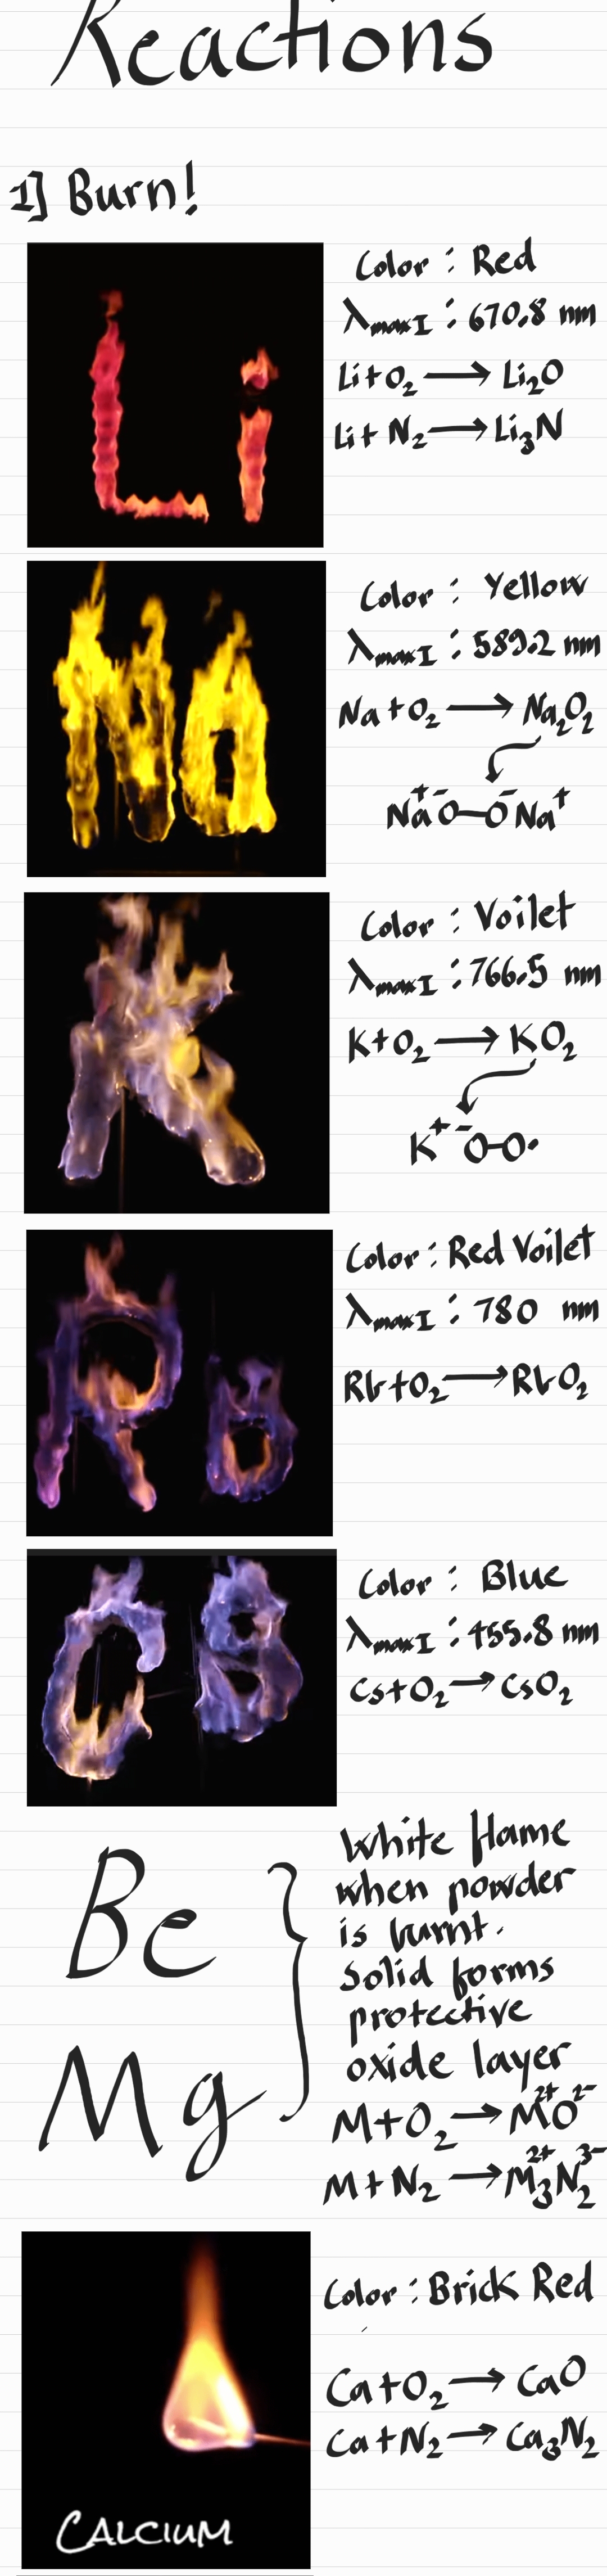 Reactions
1] Burn!
Li
Color : Red
λmax I : 670.8 nm
Li + O₂ ⟶ Li₂O
Li + N₂ ⟶ Li₃N
Na
Color : Yellow
λmax I : 589.2 nm
Na + O₂ ⟶ Na₂O₂
Na⁺ ⁻O—O⁻ Na⁺
K
Color : Voilet
λmax I : 766.5 nm
K + O₂ ⟶ KO₂
K⁺ ⁻O—O•
Rb
Color : Red Voilet
λmax I : 780 nm
Rb + O₂ ⟶ RbO₂
Cs
Color : Blue
λmax I : 455.8 nm
Cs + O₂ ⟶ CsO₂
Be
Mg
White flame
when powder
is burnt.
Solid forms
protective
oxide layer
M + O₂ ⟶ M²⁺O²⁻
M + N₂ ⟶ M₃²⁺N₂³⁻
CALCIUM
Color : Brick Red
Ca + O₂ ⟶ CaO
Ca + N₂ ⟶ Ca₃N₂